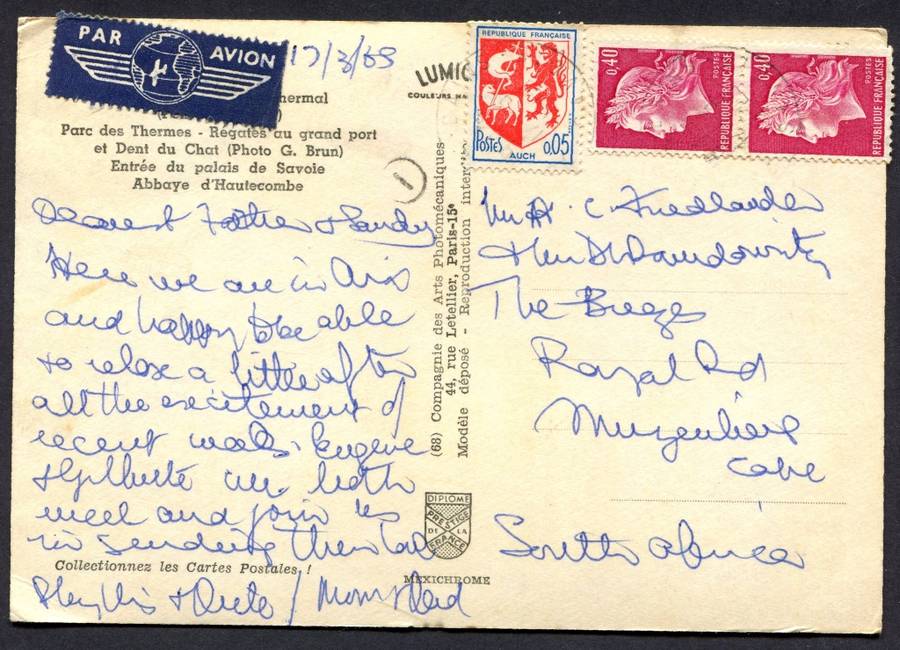 PAR AVION
17/3/69
Parc des Thermes - Régates au grand port
et Dent du Chat (Photo G. Brun)
Entrée du palais de Savoie
Abbaye d'Hautecombe
Dearest Father &
Here we are in Aix
and happy to be able
to relax a little after
all the excitement of
recent weeks. Eugene
are both
well and join us
in sending their love
Collectionnez les Cartes Postales !
Phyllis & / Mom & Dad
(68) Compagnie des Arts Photomécaniques
44, rue Letellier, Paris-15e
Modèle déposé - Reproduction inter
DIPLOME
PRESTIGE
DE LA
FRANCE
MEXICHROME
LUMIC
COULEURS NA
REPUBLIQUE FRANÇAISE
POSTES 0,05
AUCH
0,40
POSTES
REPUBLIQUE FRANÇAISE
0,40
POSTES
REPUBLIQUE FRANÇAISE
C. Friedlander
The Breges
Royal Rd
Muizenberg
Cape
South Africa